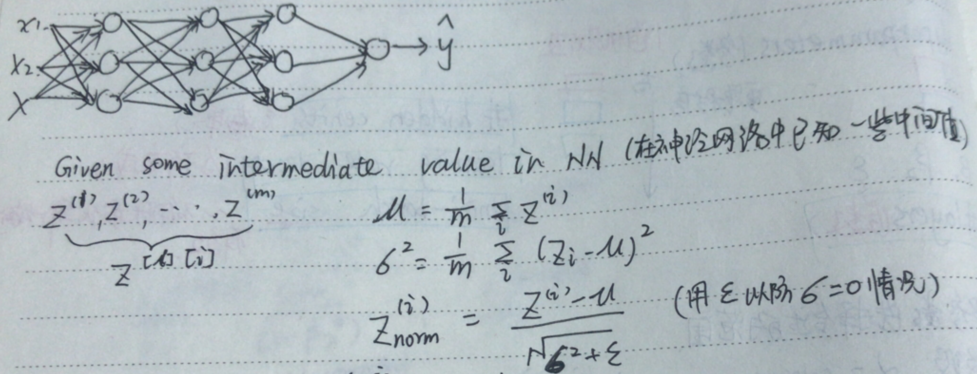 x₁
x₂
x
ŷ
Given some intermediate value in NN (在神经网络中已知一些中间值)
z⁽¹⁾, z⁽²⁾, ..., z⁽ᵐ⁾
z^{[l](i)}
μ = 1/m Σᵢ z⁽ⁱ⁾
σ² = 1/m Σᵢ (zᵢ - μ)²
z_{norm}^{(i)} = (z⁽ⁱ⁾ - μ) / √(σ² + ε) (用 ε 以防 σ = 0 情况)